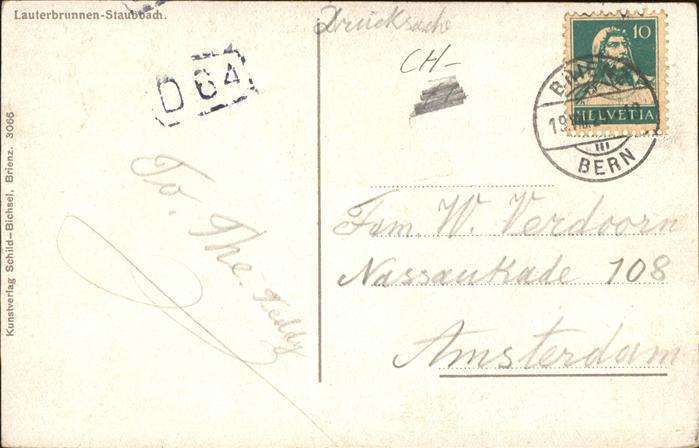 Lauterbrunnen-Staubbach.
Kunstverlag Schild-Bichsel, Brienz. 3066
D 64
To, The. Teddy
Drucksache
CH-
10
HELVETIA
BERN
Fam. W. Verdoorn
Nassaukade 108
Amsterdam